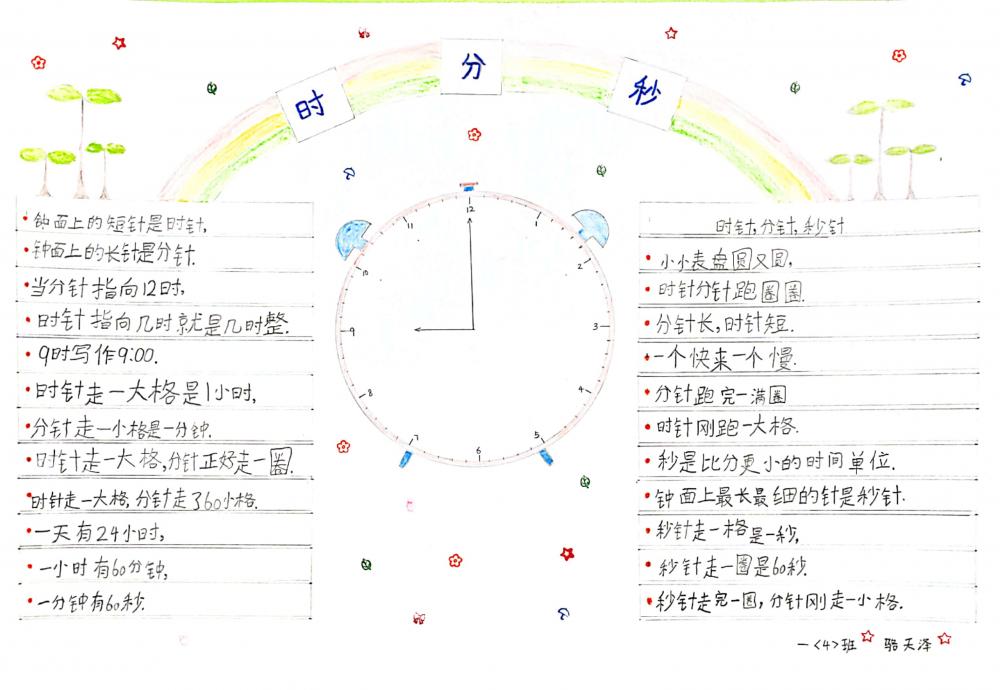 时 分 秒
钟面上的短针是时针,
钟面上的长针是分针.
当分针指向12时,
时针指向几时就是几时整.
9时写作9:00.
时针走一大格是1小时,
分针走一小格是一分钟.
时针走一大格,分针正好走一圈.
时针走一大格,分针走了60小格.
一天有24小时,
一小时有60分钟,
一分钟有60秒.
12
11 1
10 2
9 3
8 4
7 5
6
时针,分针,秒针
小小表盘圆又圆,
时针分针跑圈圈.
分针长,时针短.
一个快来一个慢.
分针跑完一满圈
时针刚跑一大格.
秒是比分更小的时间单位.
钟面上最长最细的针是秒针.
秒针走一格是一秒,
秒针走一圈是60秒.
秒针走完一圈,分针刚走一小格.
一<4>班 骆天泽